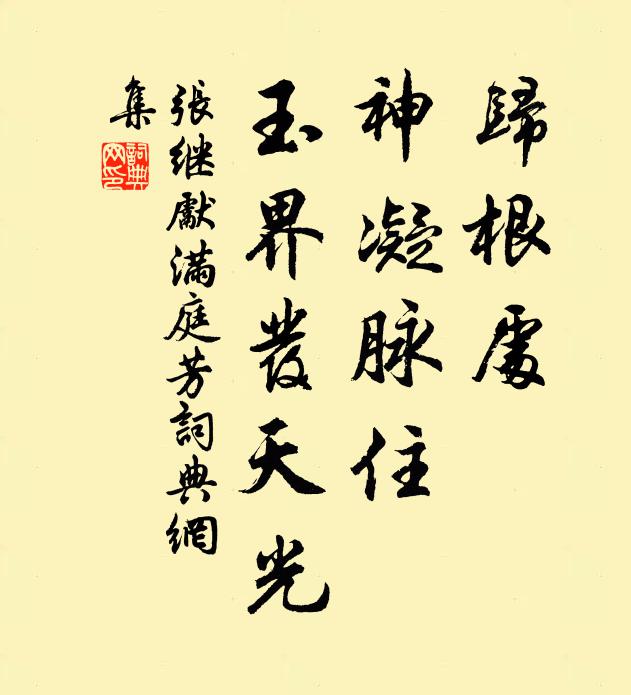 歸根處
神凝脉住
玉界發天光
張继獻滿庭芳詞典網
集
詞典
网印